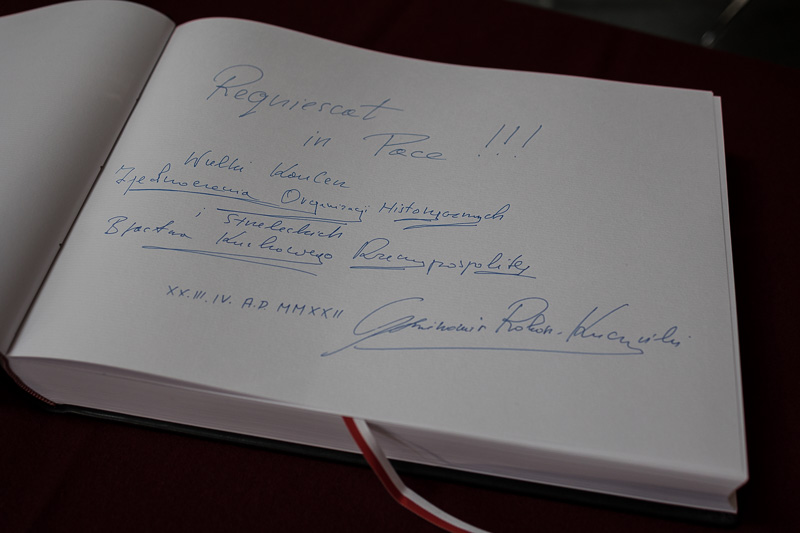 Requiescat
in Pace !!!
Wielki Kanclerz
Zjednoczenia Organizacji Historycznych
i Strzeleckich
Bractwa Kurkowego Rzeczypospolitej
XX.III.IV. A.D. MMXXII